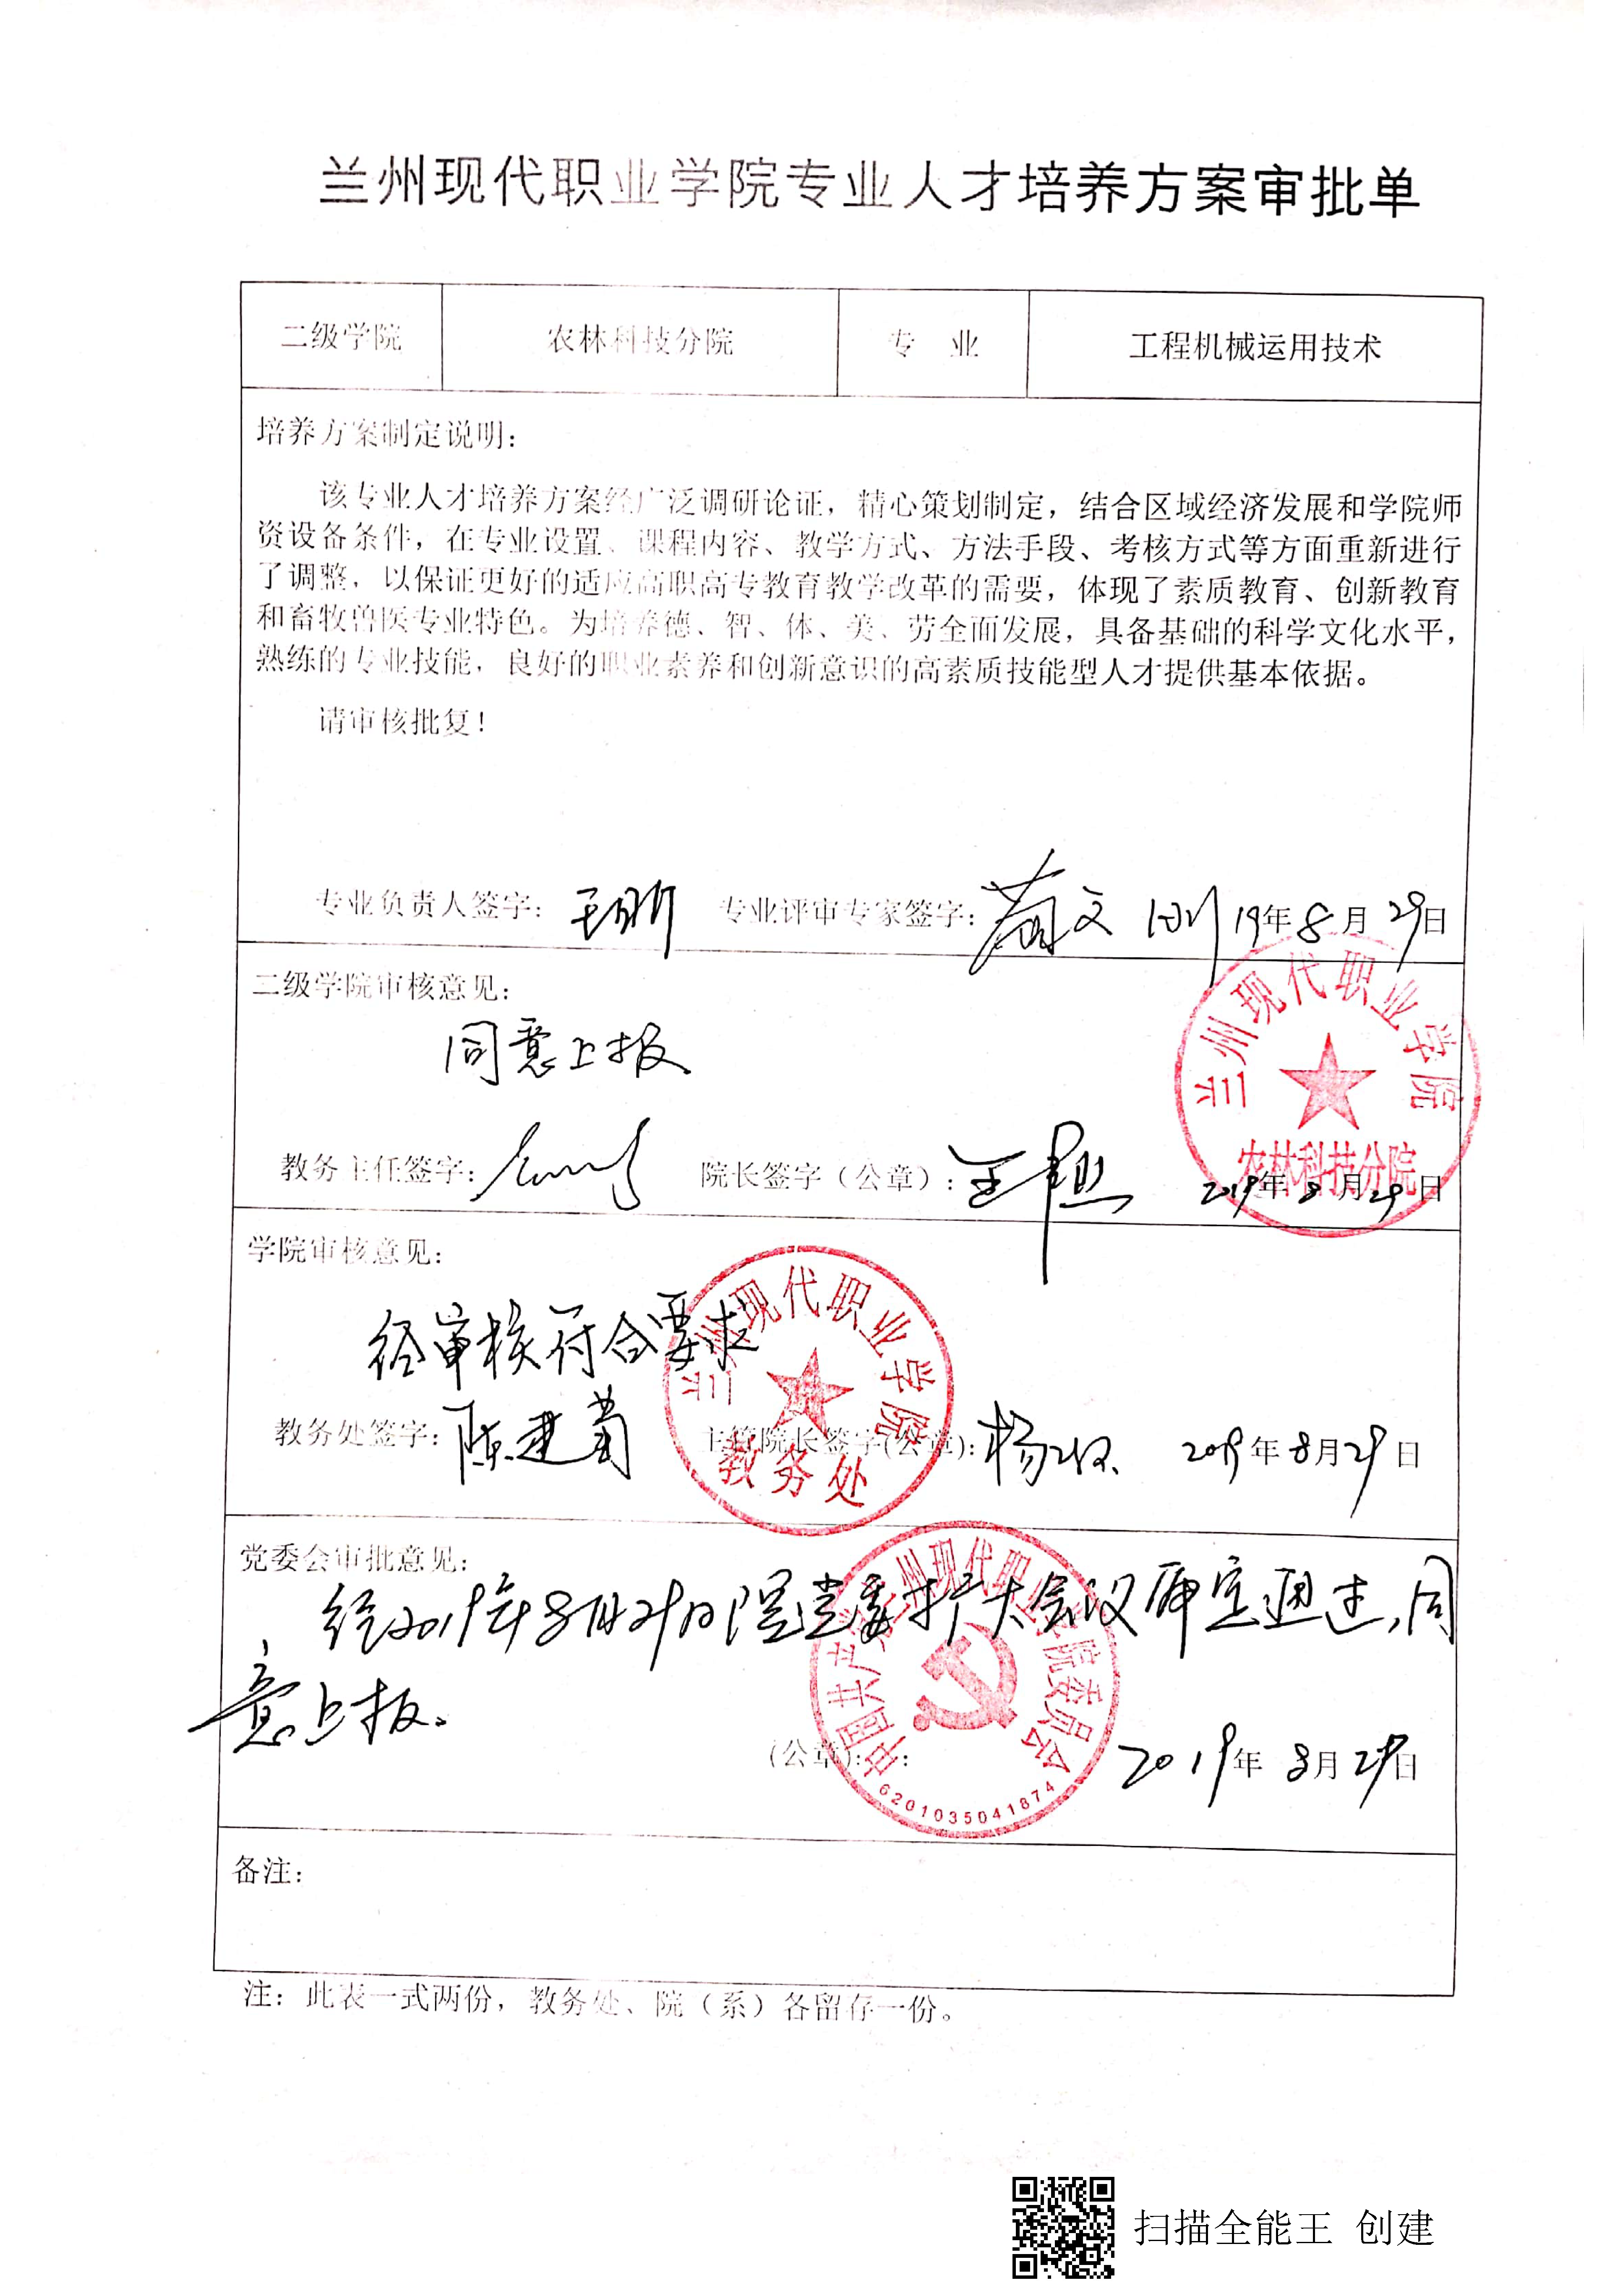 兰州现代职业学院专业人才培养方案审批单
二级学院 农林科技分院 专 业 工程机械运用技术
培养方案制定说明：
该专业人才培养方案经广泛调研论证，精心策划制定，结合区域经济发展和学院师
资设备条件，在专业设置、课程内容、教学方式、方法手段、考核方式等方面重新进行
了调整，以保证更好的适应高职高专教育教学改革的需要，体现了素质教育、创新教育
和畜牧兽医专业特色。为培养德、智、体、美、劳全面发展，具备基础的科学文化水平，
熟练的专业技能，良好的职业素养和创新意识的高素质技能型人才提供基本依据。
请审核批复！
专业负责人签字： 专业评审专家签字： 19年8月29日
二级学院审核意见：
同意上报
教务主任签字： 院长签字（公章）： 2019年8月29日
兰州现代职业学院
农林科技分院
学院审核意见：
经审核符合要求
教务处签字：陈建菊 主管院长签字(公章)： 2019年8月29日
兰州现代职业学院
教务处
党委会审批意见：
经2019年8月29日院党委扩大会议审定通过，同
意上报。
（公章）： 2019年8月29日
中国共产党兰州现代职业学院委员会
6201035041874
备注：
注：此表一式两份，教务处、院（系）各留存一份。
扫描全能王 创建